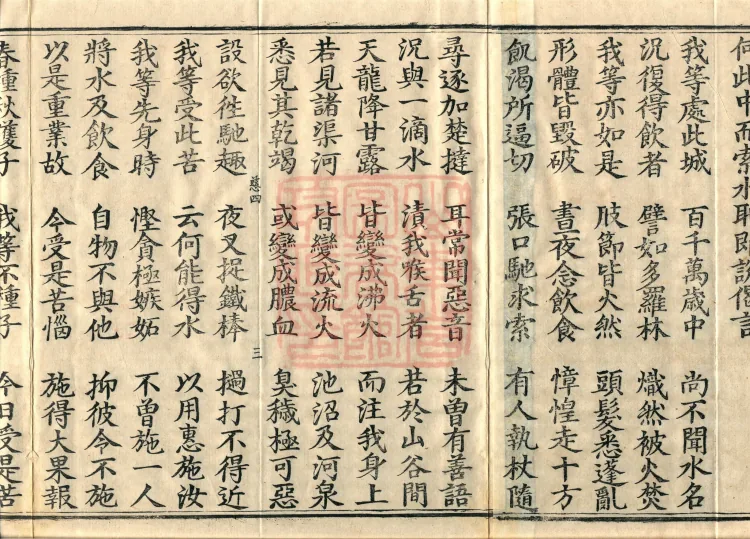 何此中而索水耶即說偈言
我等處此城 百千萬歲中 尚不聞水名
況復得飲者 譬如多羅林 熾然被火焚
我等亦如是 肢節皆火然 頭髮悉蓬亂
形體皆毀破 晝夜念飲食 慞惶走十方
飢渴所逼切 張口馳求索 有人執杖隨
尋逐加楚撻 耳常聞惡音 未曾有善語
況與一滴水 漬我喉舌者 若於山谷間
天龍降甘露 皆變成沸火 而注我身上
若見諸渠河 皆變成流火 池沼及河泉
悉見其乾竭 或變成膿血 臭穢極可惡
設欲往馳趣 夜叉捉鐵棒 撾打不得近
慈四 三
我等受此苦 云何能得水 以用惠施汝
我等先身時 慳貪極嫉妬 不曾施一人
將水及飲食 自物不與他 抑彼令不施
以是重業故 今受是苦惱 施得大果報
春種秋獲子 我等不種子 今日受是苦